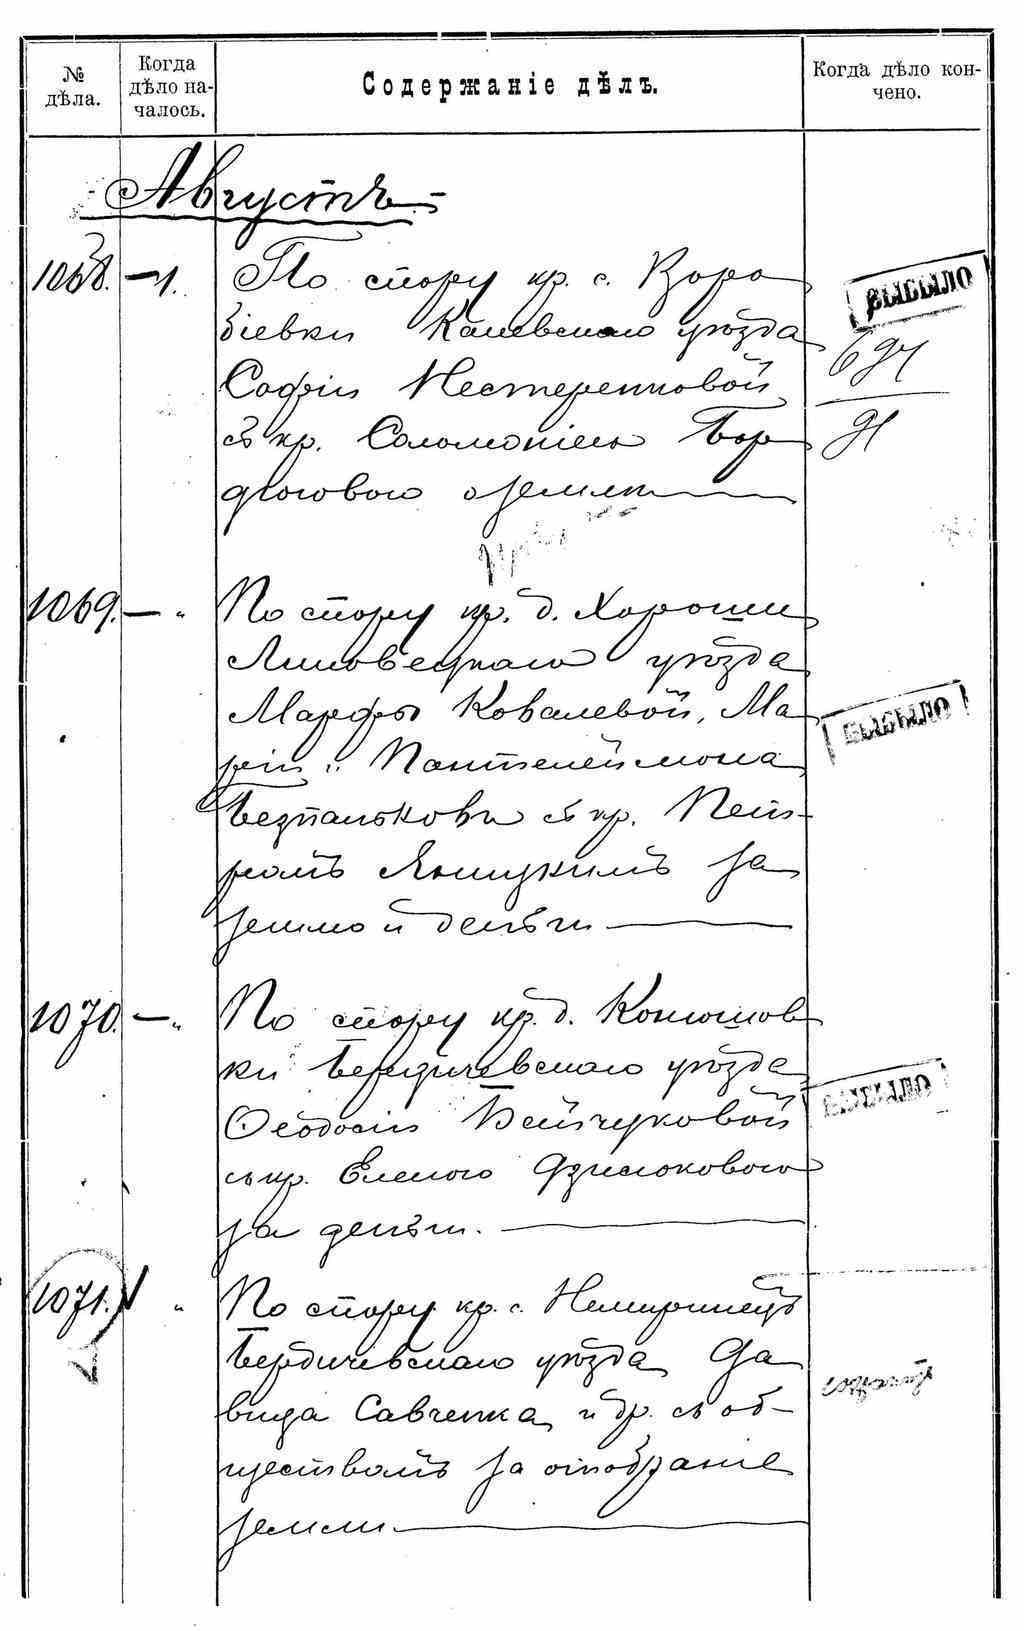 № дѣла.
Когда дѣло началось.
Содержаніе дѣлъ.
Когда дѣло кончено.
Августъ
1068. — 1. По спору кр. с. Воро
біевки Каневскаго уѣзда
Софіи Нестеренковой
съ кр. Соломоніею Бор
дюговою о землѣ
ВЫБЫЛО
694
91
1069. — „ По спору кр. д. Хороши
Липовецкаго уѣзда
Марфы Ковалевой, Ма
ріи и Пантелеймона
Безпальковы съ кр. Пет-
ромъ Яницкимъ за
землю и деньги
ВЫБЫЛО
1070. — „ По спору кр. д. Конюшов
ки Бердичевскаго уѣзда
Ѳеодосіи Бейчуковой
съ кр. Еленою Дзисюковою
за деньги.
ВЫБЫЛО
1071. „ По спору кр. с. Немиринецъ
Бердичевскаго уѣзда Да
вида Савченка и др. съ об-
ществомъ за отобраніе
земли